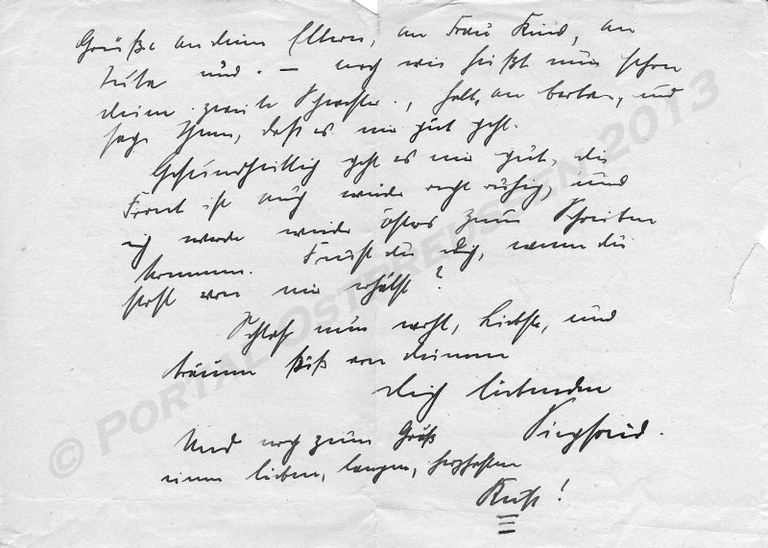 Grüße an deine Eltern, an Frau Kind, an
und. — noch wie heißt nun schon
deine zweite Schwester., halt, an Berta, und
sage Ihnen, daß es mir gut geht.
Gesundheitlich geht es mir gut, die
Front ist auch wieder recht ruhig, und
ich werde wieder öfters zum Schreiben
kommen. Freust du dich, wenn du
Post von mir erhälst?
Schlaf nun wohl, Liebste, und
träume süß von deinem
dich liebenden
Siegfried.
Und noch zum Gruß
einen lieben, langen, herzhaften
Kuß!
© PORTAL-OSTPREUSSEN 2013